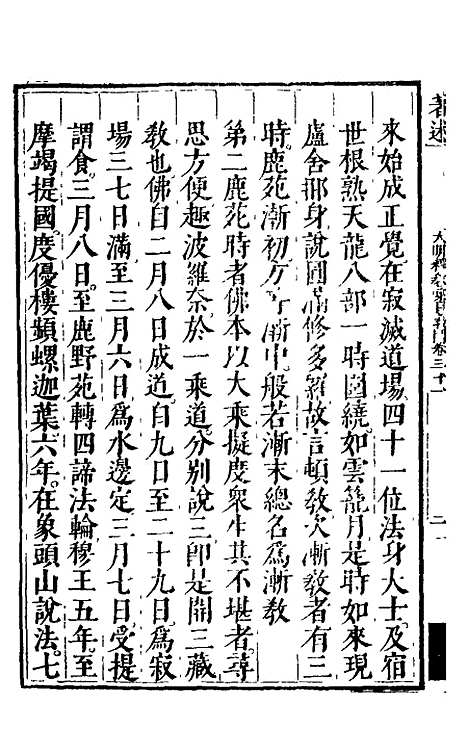 來始成正覺在寂滅道場四十一位法身大士及宿
世根熟天龍八部一時圍繞如雲籠月是時如來現
盧舍那身說圓滿修多羅故言頓敎次漸敎者有三
時鹿苑漸初方等漸中般若漸末總名爲漸敎
第二鹿苑時者佛本以大乘擬度衆生其不堪者尋
思方便趣波羅奈於一乘道分別說三卽是開三藏
敎也佛自二月八日成道自九日至二十九日爲寂
場三七日滿至三月六日爲水邊定三月七日受提
謂食三月八日至鹿野苑轉四諦法輪穆王五年至
摩竭提國度優樓頻螺迦葉六年在象頭山說法七
著述
大明釋教彙目義門卷三十一
二